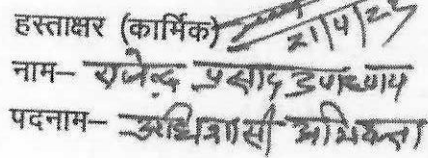 हस्ताक्षर (कार्मिक) 21/4/22
नाम– राजेन्द्र प्रसाद उपाध्याय
पदनाम– अधिशासी अभियन्ता